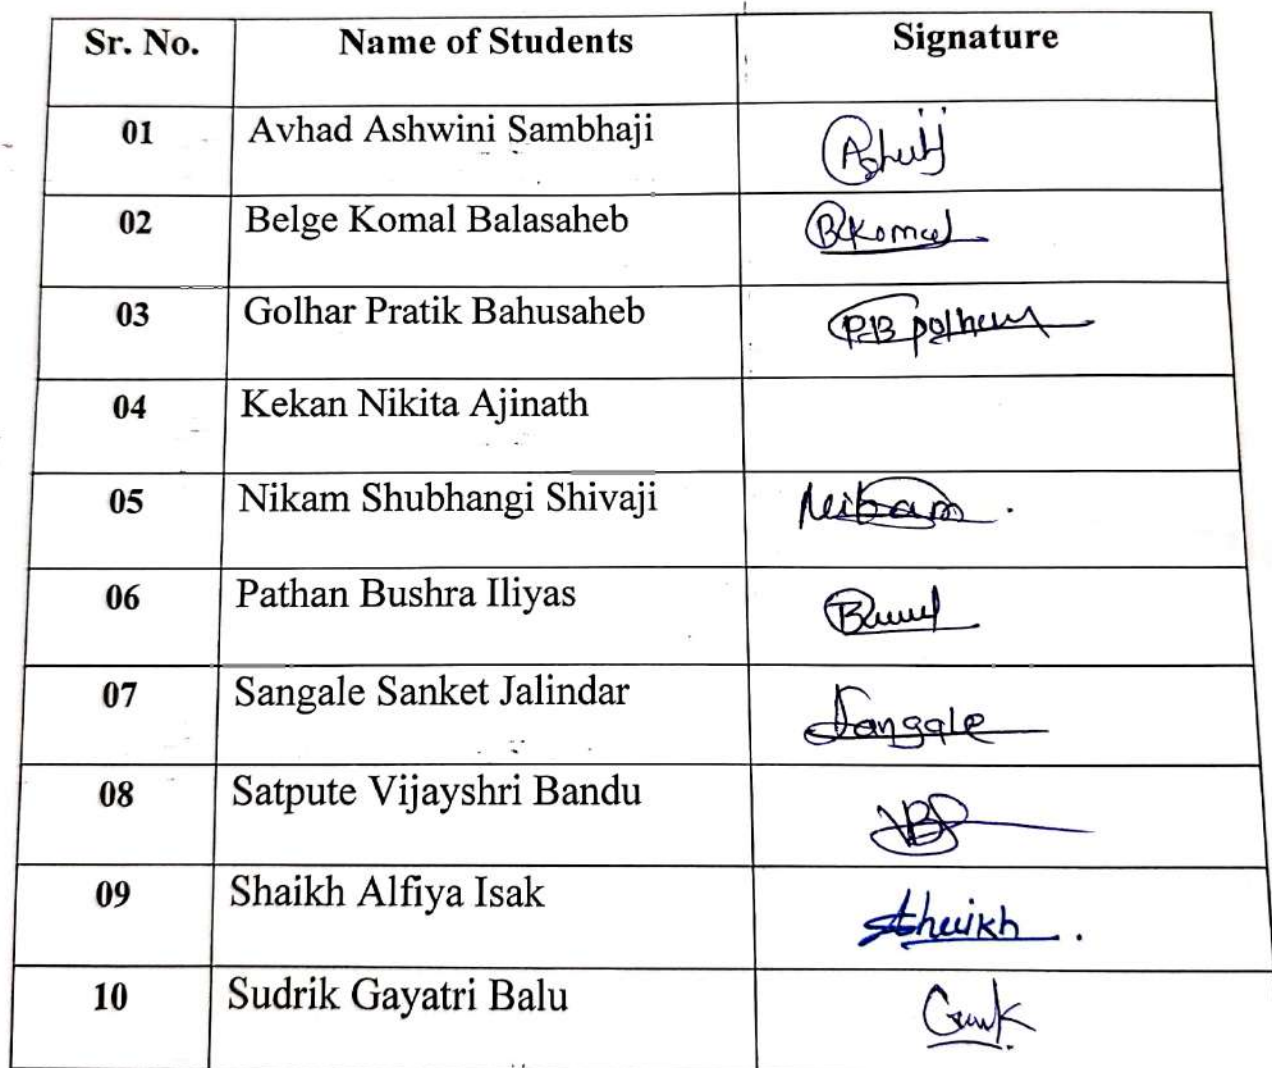 Sr. No. Name of Students Signature
01 Avhad Ashwini Sambhaji
02 Belge Komal Balasaheb BKomal
03 Golhar Pratik Bahusaheb
04 Kekan Nikita Ajinath
05 Nikam Shubhangi Shivaji
06 Pathan Bushra Iliyas
07 Sangale Sanket Jalindar Sangale
08 Satpute Vijayshri Bandu
09 Shaikh Alfiya Isak Shaikh
10 Sudrik Gayatri Balu